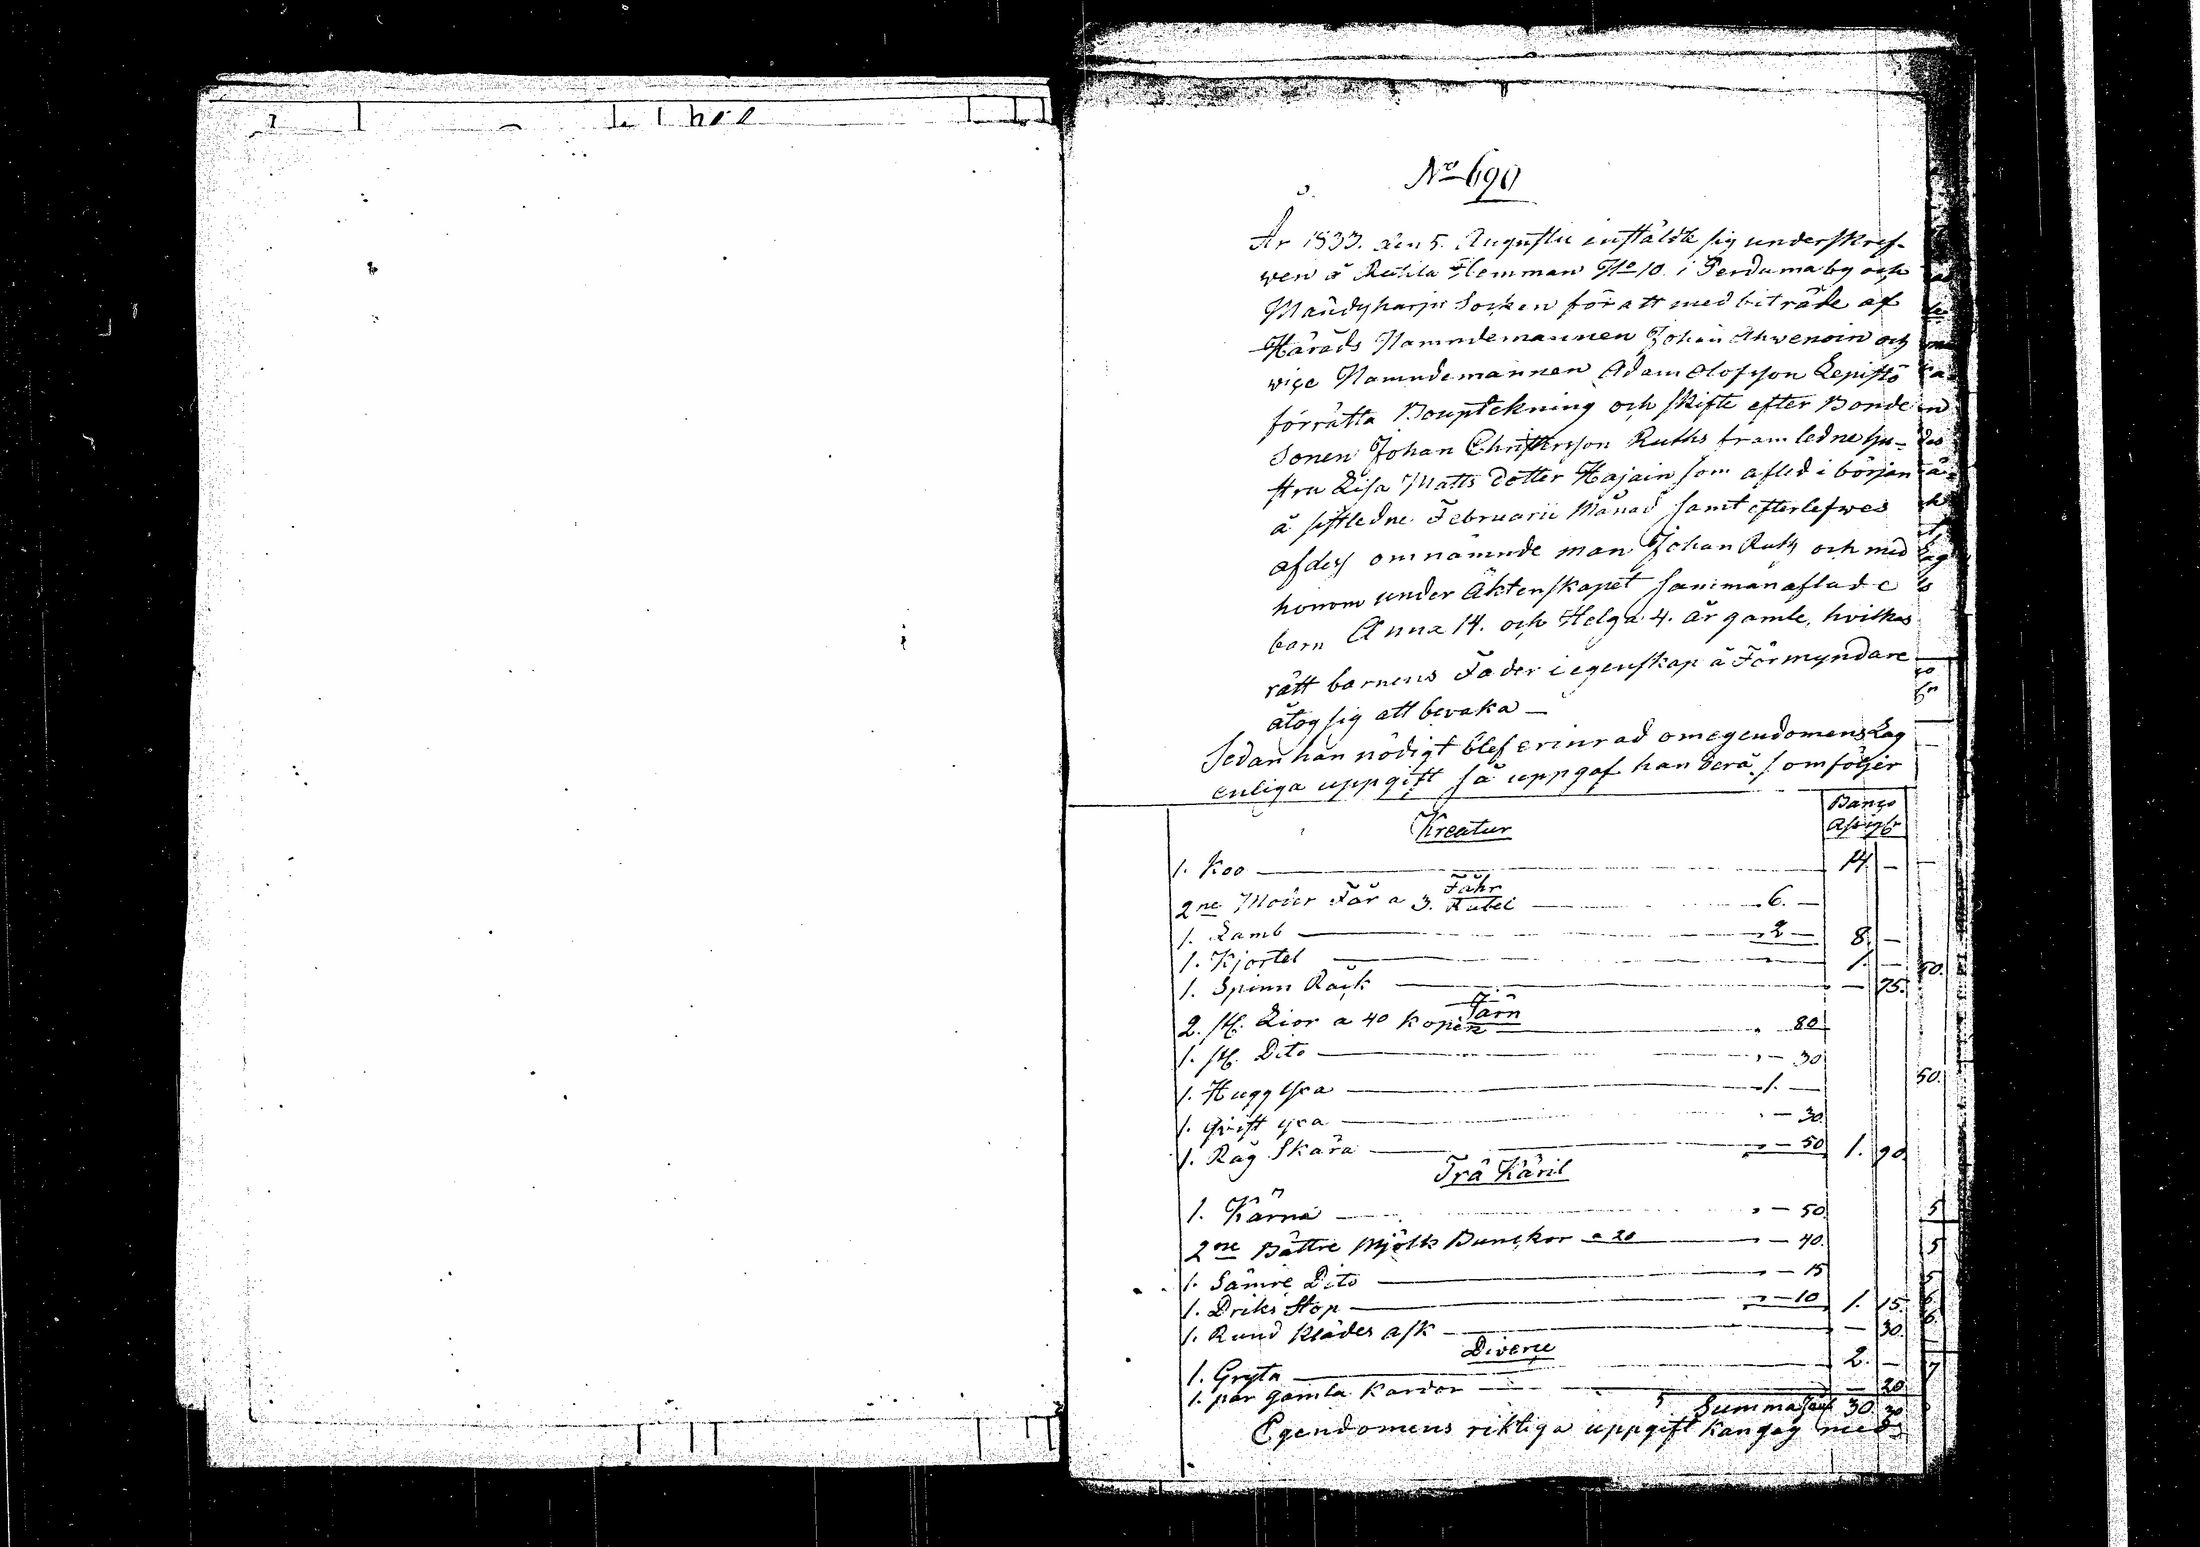 No 690
År 1833. den 5. Augustii instälde sig underskref-
wen å Hemman No 10 i Perdumaby och
Mändyharju Socken för att med biträde af
Härads Namndemannen Johan Ahwenoin och
wice Namndemannen Adam Olofsson Lepistö
förrätta Bouptekning och skifte efter Bonde
Sonen Johan Christersson Ruths framledne hu-
stru Lisa Matts dotter Hajain som afled i början
å sistledne Februarii Månad samt efterlefwes
af dess omnämnde man Johan Ruth och med
honom under Äktenskapet sammanaflade
barn Anna 14. och Helga 4. år gamle, hvilkas
rätt barnens Fader i egenskap å Förmyndare
åtog sig att bevaka —
Sedan han nödigt blef erinrad om egendomens Lag
enliga uppgift så uppgaf han derå som följer
Banco
Assign
Kreatur
1. Koo — 14 —
Fåhr
2ne Moder Får a 3. Rubel — 6. —
1. Lamb — 2 — 8. —
1. Kjortel — 1. —
1. Spinn Råck — 75.
Järn
2. st. Lior a 40 kopek — 80
1. st. Dito — 30
1. Hugg yxa — 1. —
1. yxa — 30.
1. Råg Skära — 50 1. 90.
Trä Käril
1. Kärna — 50.
2ne Bättre Mjölk Bunckor a 20 — 40.
1. Sämre Dito — 15
1. Driks Stop — 10 1. 15.
1. Rund Kläder ask — 30.
Diverse
1. Gryta — 2. —
1. par gamla Kardor — 20
Summa 30. 30
Egendomens riktiga uppgift kan jag med